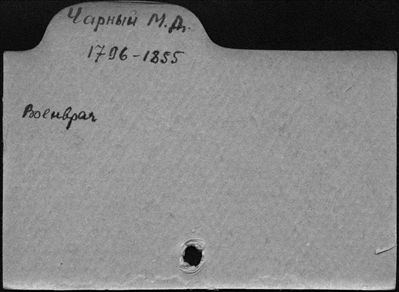 Чарный М.Д.
1796-1855
Военврач